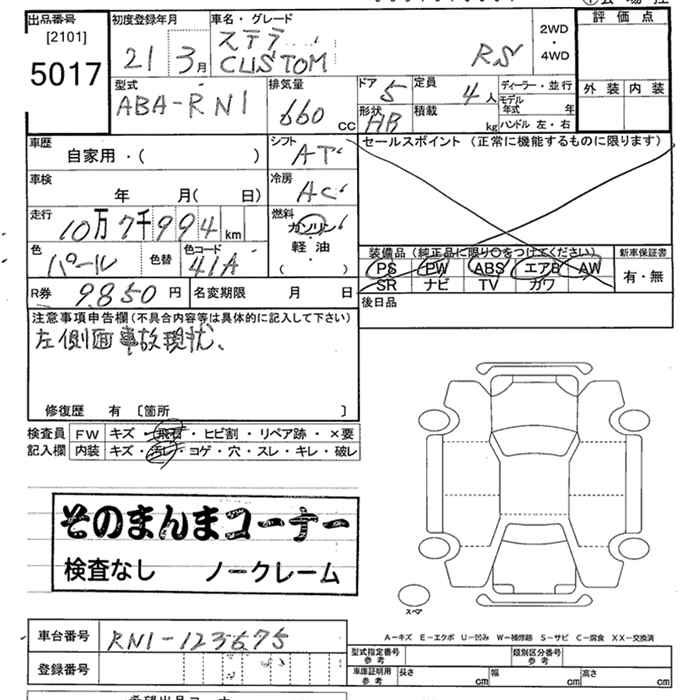 出品番号 初度登録年月 車名・グレード 評価点
[2101] ステラ 2WD
5017 21 3月 CUSTOM RS ・4WD
型式 排気量 ドア 定員 ディーラー・並行 外装 内装
ABA-RN1 660 CC 5 4人 モデル年式 年
形状 HB 積載 kg ハンドル 左・右
車歴 シフト セールスポイント (正常に機能するものに限ります)
自家用・( ) AT
車検 冷房
年 月( 日) AC
走行 燃料
10万7千994km ガソリン
軽・油
( )
色 色替 色コード 装備品(純正品に限り○をつけてください) 新車保証書
パール 41A PS PW ABS エアB AW 有・無
SR ナビ TV カワ
R券 9.850円 名変期限 月 日 後日品
注意事項申告欄(不具合内容等は具体的に記入して下さい)
左側面事故現状、
修復歴 有 [箇所 ]
検査員 FW キズ・飛石・ヒビ割・リペア跡・×要
記入欄 内装 キズ・汚レ・コゲ・穴・スレ・キレ・破レ
そのまんまコーナー
検査なし ノークレーム
スペア
A-キズ E-エクボ U-凹み W-補修跡 S-サビ C-腐食 XX-交換済
車台番号 RN1-123675 型式指定番号 参考 類別区分番号 参考
登録番号 車庫証明用 参考 長さ cm 幅 cm 高さ cm